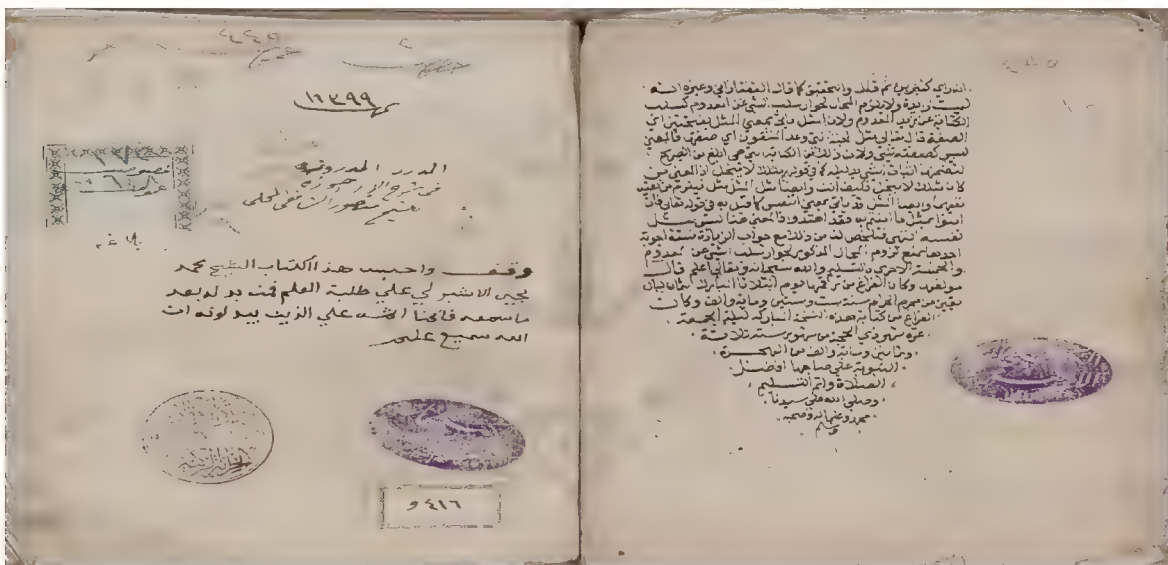 ١١٣٩٩
الدرر المدروزه
في شرح الارجوزه
للشيخ منصور الشافعي المحلي
وقف واحبس هذا الكتاب الشيخ محمد
يحيى الاشبولي علي طلبة العلم فمن بدله بعد
ما سمعه فانما اثمه علي الذين يبدلونه ان
الله سميع عليم
٤١٦ و
ليست بزيدة ولا يلزم المحال لجواز سلب الشي عن المعدوم كسلب
الكتابة عن زيد المعدوم ولان المثل ياتي بمعنى المثل بفتحتين اي
الصفة قال تعالى مثل الجنة التي وعد المتقون اي صفتها فالمعنى
ليس كصفته شي ولان ذلك من الكناية التي هي ابلغ من الصريح
لتضمنها اثبات الشي بدليله كما في قولهم مثلك لا يبخل اذ المعنى من
كان مثلك لا يبخل فكيف انت وايضا مثل المثل مثل
وايضا المثل قد ياتي بمعنى النفس كما قيل به في قوله تعالى فان
امنوا بمثل ما امنتم به فقد اهتدوا فالمعنى هنا ليس مثل
نفسه انتهى فتلخص لك من ذلك مع جواب الزيادة ستة اجوبة
احدها بمنع لزوم المحال المذكور بجواز سلب الشي عن المعدوم
والخمسة الاخرى بالتسليم والله سبحانه وتعالى اعلم قال
مولفه وكان الفراغ من يوم الثلاثا المبارك لثمان ليال
بقين من محرم الحرام سنة ست وستين وماية والف وكان
الفراغ من كتابة هذه النسخة المباركة ليلة الجمعة
غرة شهر ذي الحجة من شهور سنة ثلاثة
وثمانين وماية والف من الهجرة
النبوية علي صاحبها افضل
الصلاة واتم التسليم
وصلى الله على سيدنا
محمد وعلى اله وصحبه
وسلم